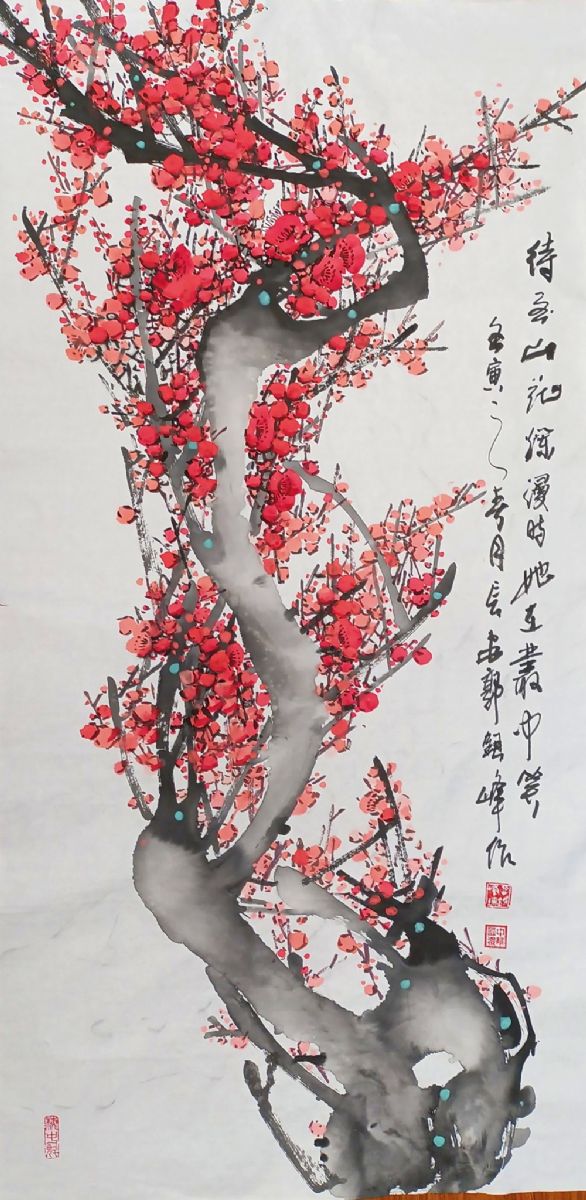 待到山花烂漫时她在丛中笑
壬寅之春月长安郭镇峰作